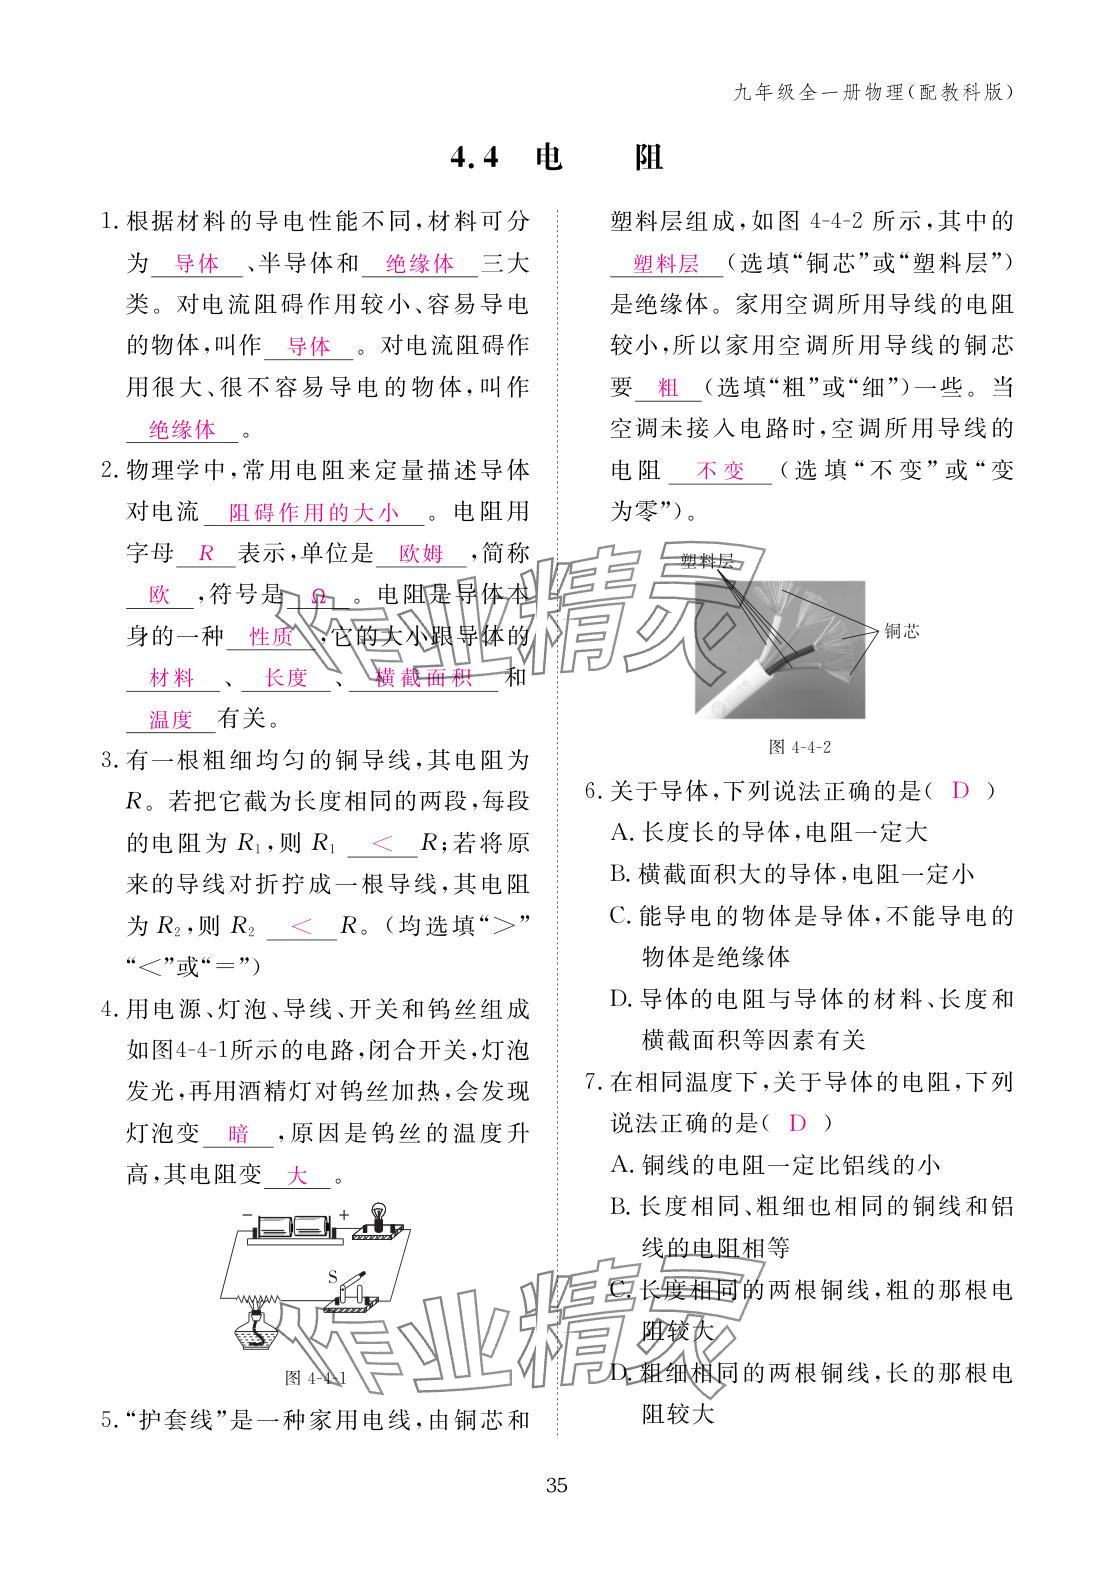 九年级全一册物理(配教科版)
4.4 电 阻
1. 根据材料的导电性能不同,材料可分
为 导体 、半导体和 绝缘体 三大
类。对电流阻碍作用较小、容易导电
的物体,叫作 导体 。对电流阻碍作
用很大、很不容易导电的物体,叫作
绝缘体 。
2. 物理学中,常用电阻来定量描述导体
对电流 阻碍作用的大小 。电阻用
字母 R 表示,单位是 欧姆 ,简称
欧 ,符号是 Ω 。电阻是导体本
身的一种 性质 ,它的大小跟导体的
材料 、 长度 、 横截面积 和
温度 有关。
3. 有一根粗细均匀的铜导线,其电阻为
R。若把它截为长度相同的两段,每段
的电阻为 R₁,则 R₁ < R;若将原
来的导线对折拧成一根导线,其电阻
为 R₂,则 R₂ < R。(均选填“>”
“<”或“=”)
4. 用电源、灯泡、导线、开关和钨丝组成
如图4-4-1所示的电路,闭合开关,灯泡
发光,再用酒精灯对钨丝加热,会发现
灯泡变 暗 ,原因是钨丝的温度升
高,其电阻变 大 。
− +
S
图 4-4-1
5. “护套线”是一种家用电线,由铜芯和
塑料层组成,如图 4-4-2 所示,其中的
塑料层 (选填“铜芯”或“塑料层”)
是绝缘体。家用空调所用导线的电阻
较小,所以家用空调所用导线的铜芯
要 粗 (选填“粗”或“细”)一些。当
空调未接入电路时,空调所用导线的
电阻 不变 (选填“不变”或“变
为零”)。
塑料层
铜芯
图 4-4-2
6. 关于导体,下列说法正确的是( D )
A. 长度长的导体,电阻一定大
B. 横截面积大的导体,电阻一定小
C. 能导电的物体是导体,不能导电的
物体是绝缘体
D. 导体的电阻与导体的材料、长度和
横截面积等因素有关
7. 在相同温度下,关于导体的电阻,下列
说法正确的是( D )
A. 铜线的电阻一定比铝线的小
B. 长度相同、粗细也相同的铜线和铝
线的电阻相等
C. 长度相同的两根铜线,粗的那根电
阻较大
D. 粗细相同的两根铜线,长的那根电
阻较大
35
作业精灵
作业精灵